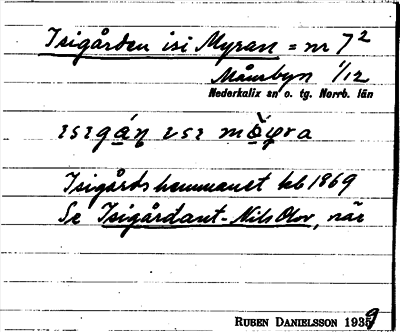 Isigården isi Myran = nr 7²
Månsbyn 1/12
Nederkalix sn o. tg. Norrb. län
Isigårdshemmanet kb 1869
Se Isigårdant-Nils Olov, när
RUBEN DANIELSSON 1939